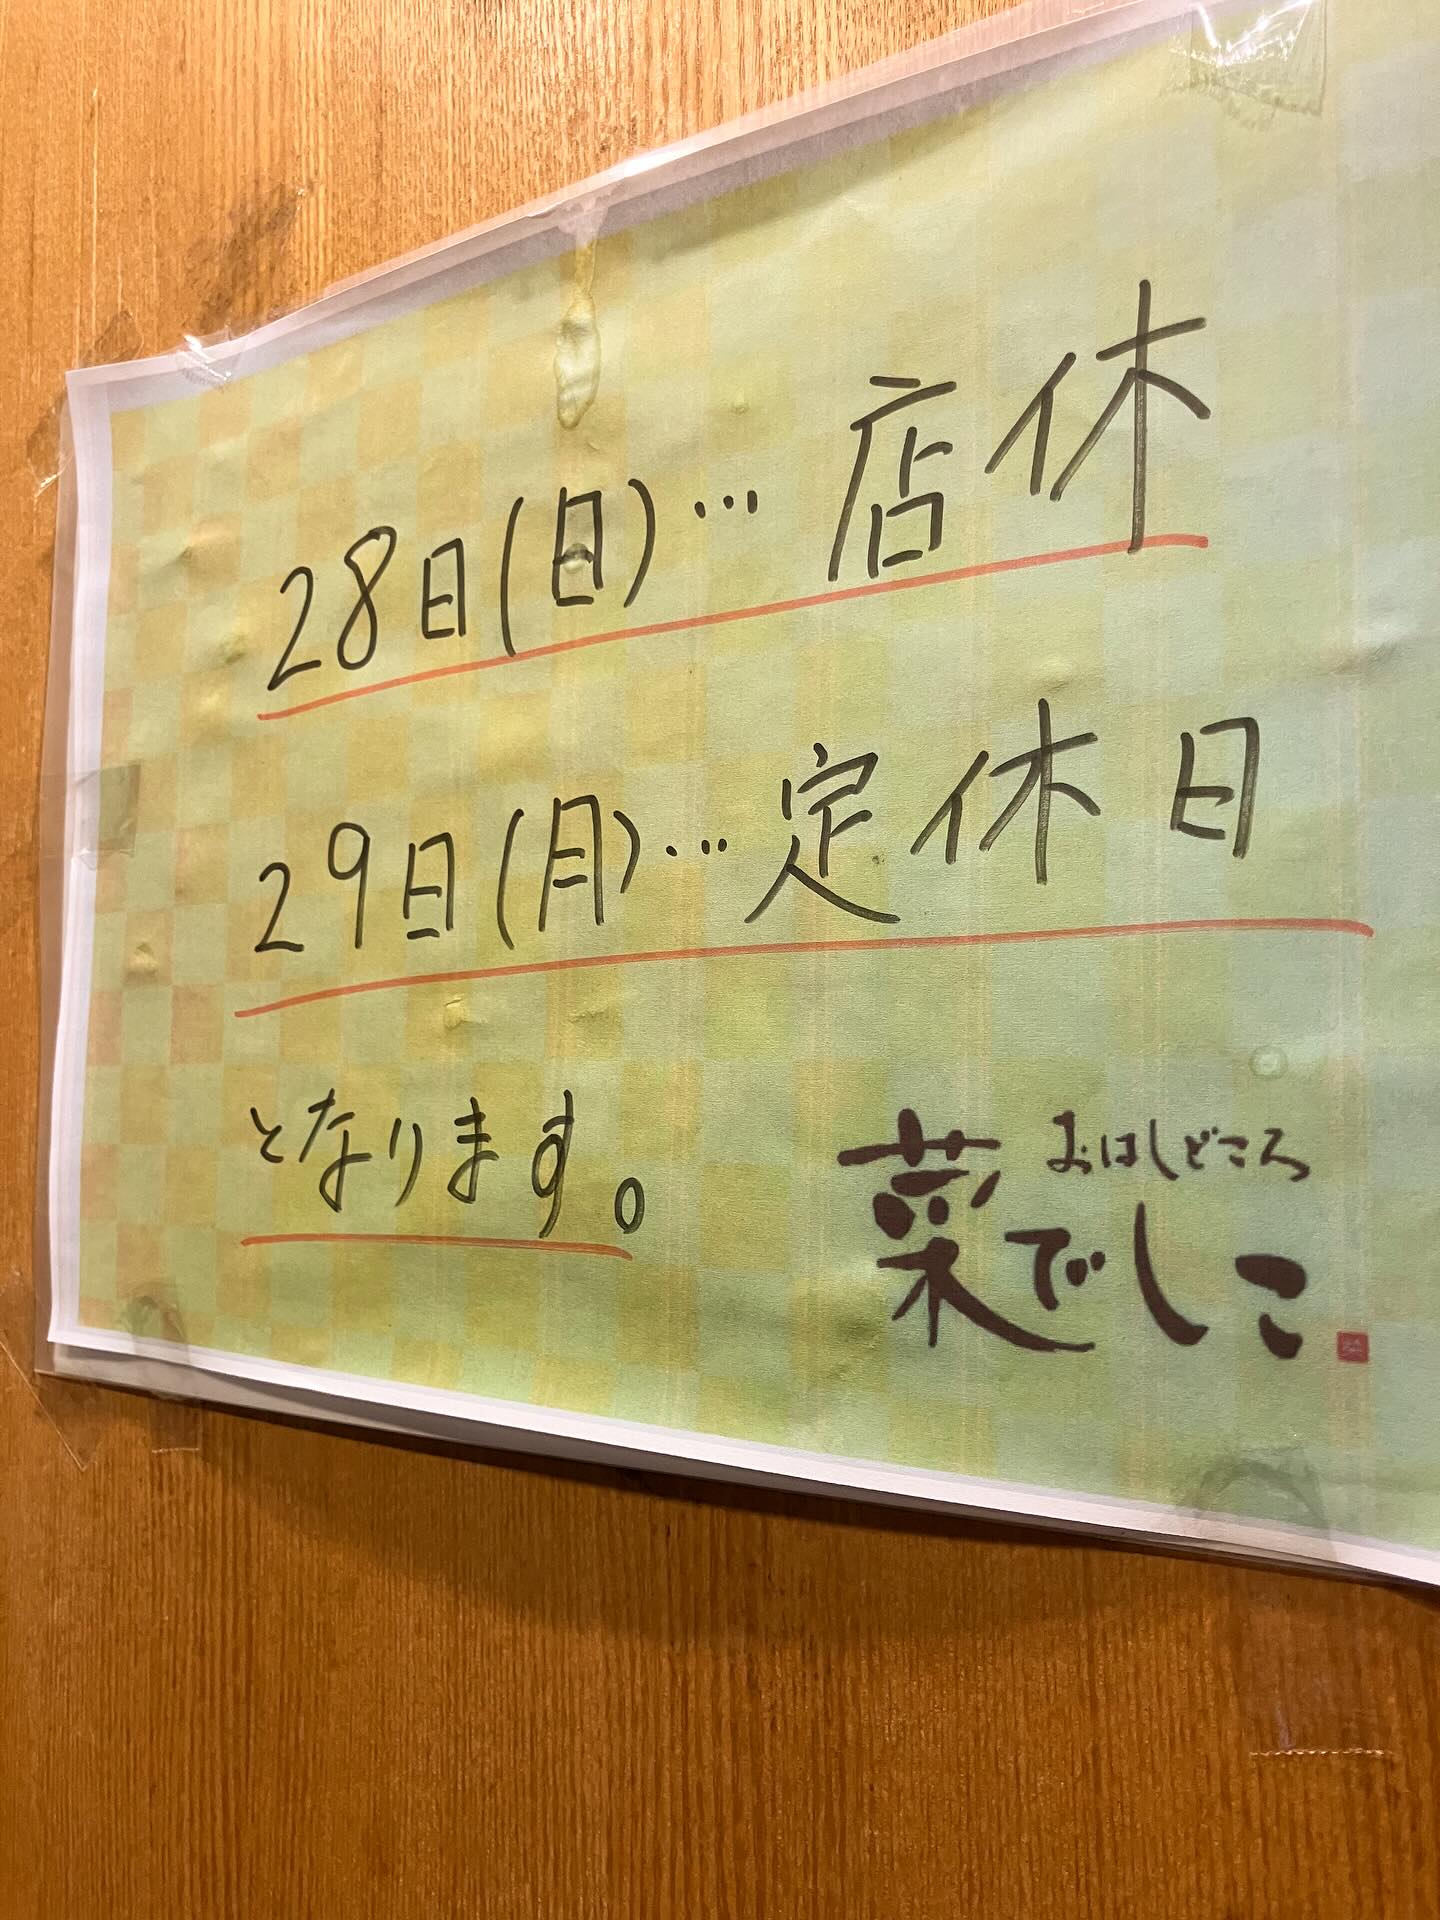 28日(日)…店休
29日(月)…定休日
となります。
おはしどころ
菜でしこ